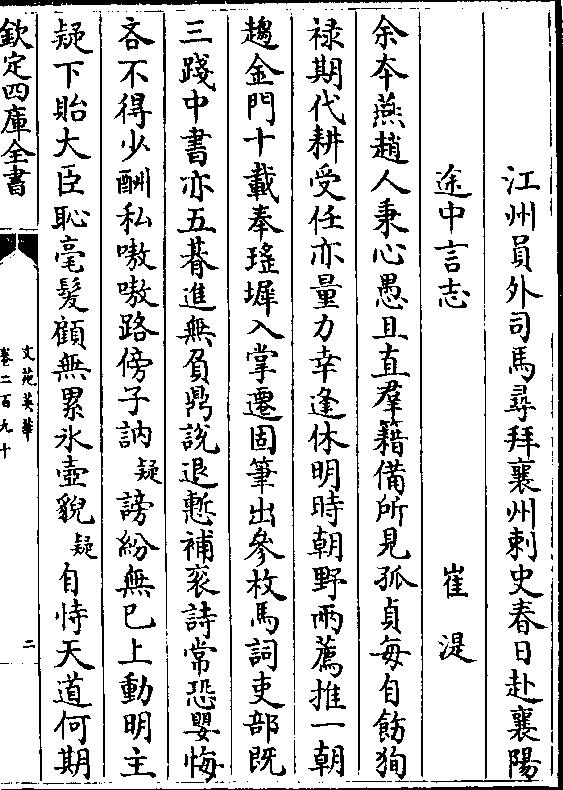 江州員外司馬尋拜襄州刺史春日赴襄陽
途中言志　崔湜
余本燕趙人秉心愚且直羣籍備所見孤貞每自飭狥
禄期代耕受任亦量力幸逢休明時朝野兩薦推一朝
趨金門十載奉瑤墀入掌遷固筆出參枚馬詞吏部既
三踐中書亦五朞進無負鼎說退慙補衮詩常恐嬰悔
吝不得少酬私嗷嗷路傍子訥疑謗紛無已上動明主
疑下貽大臣恥毫髮顧無累氷壺貌疑自恃天道何期
欽定四庫全書
文苑英華
卷二百九十
二